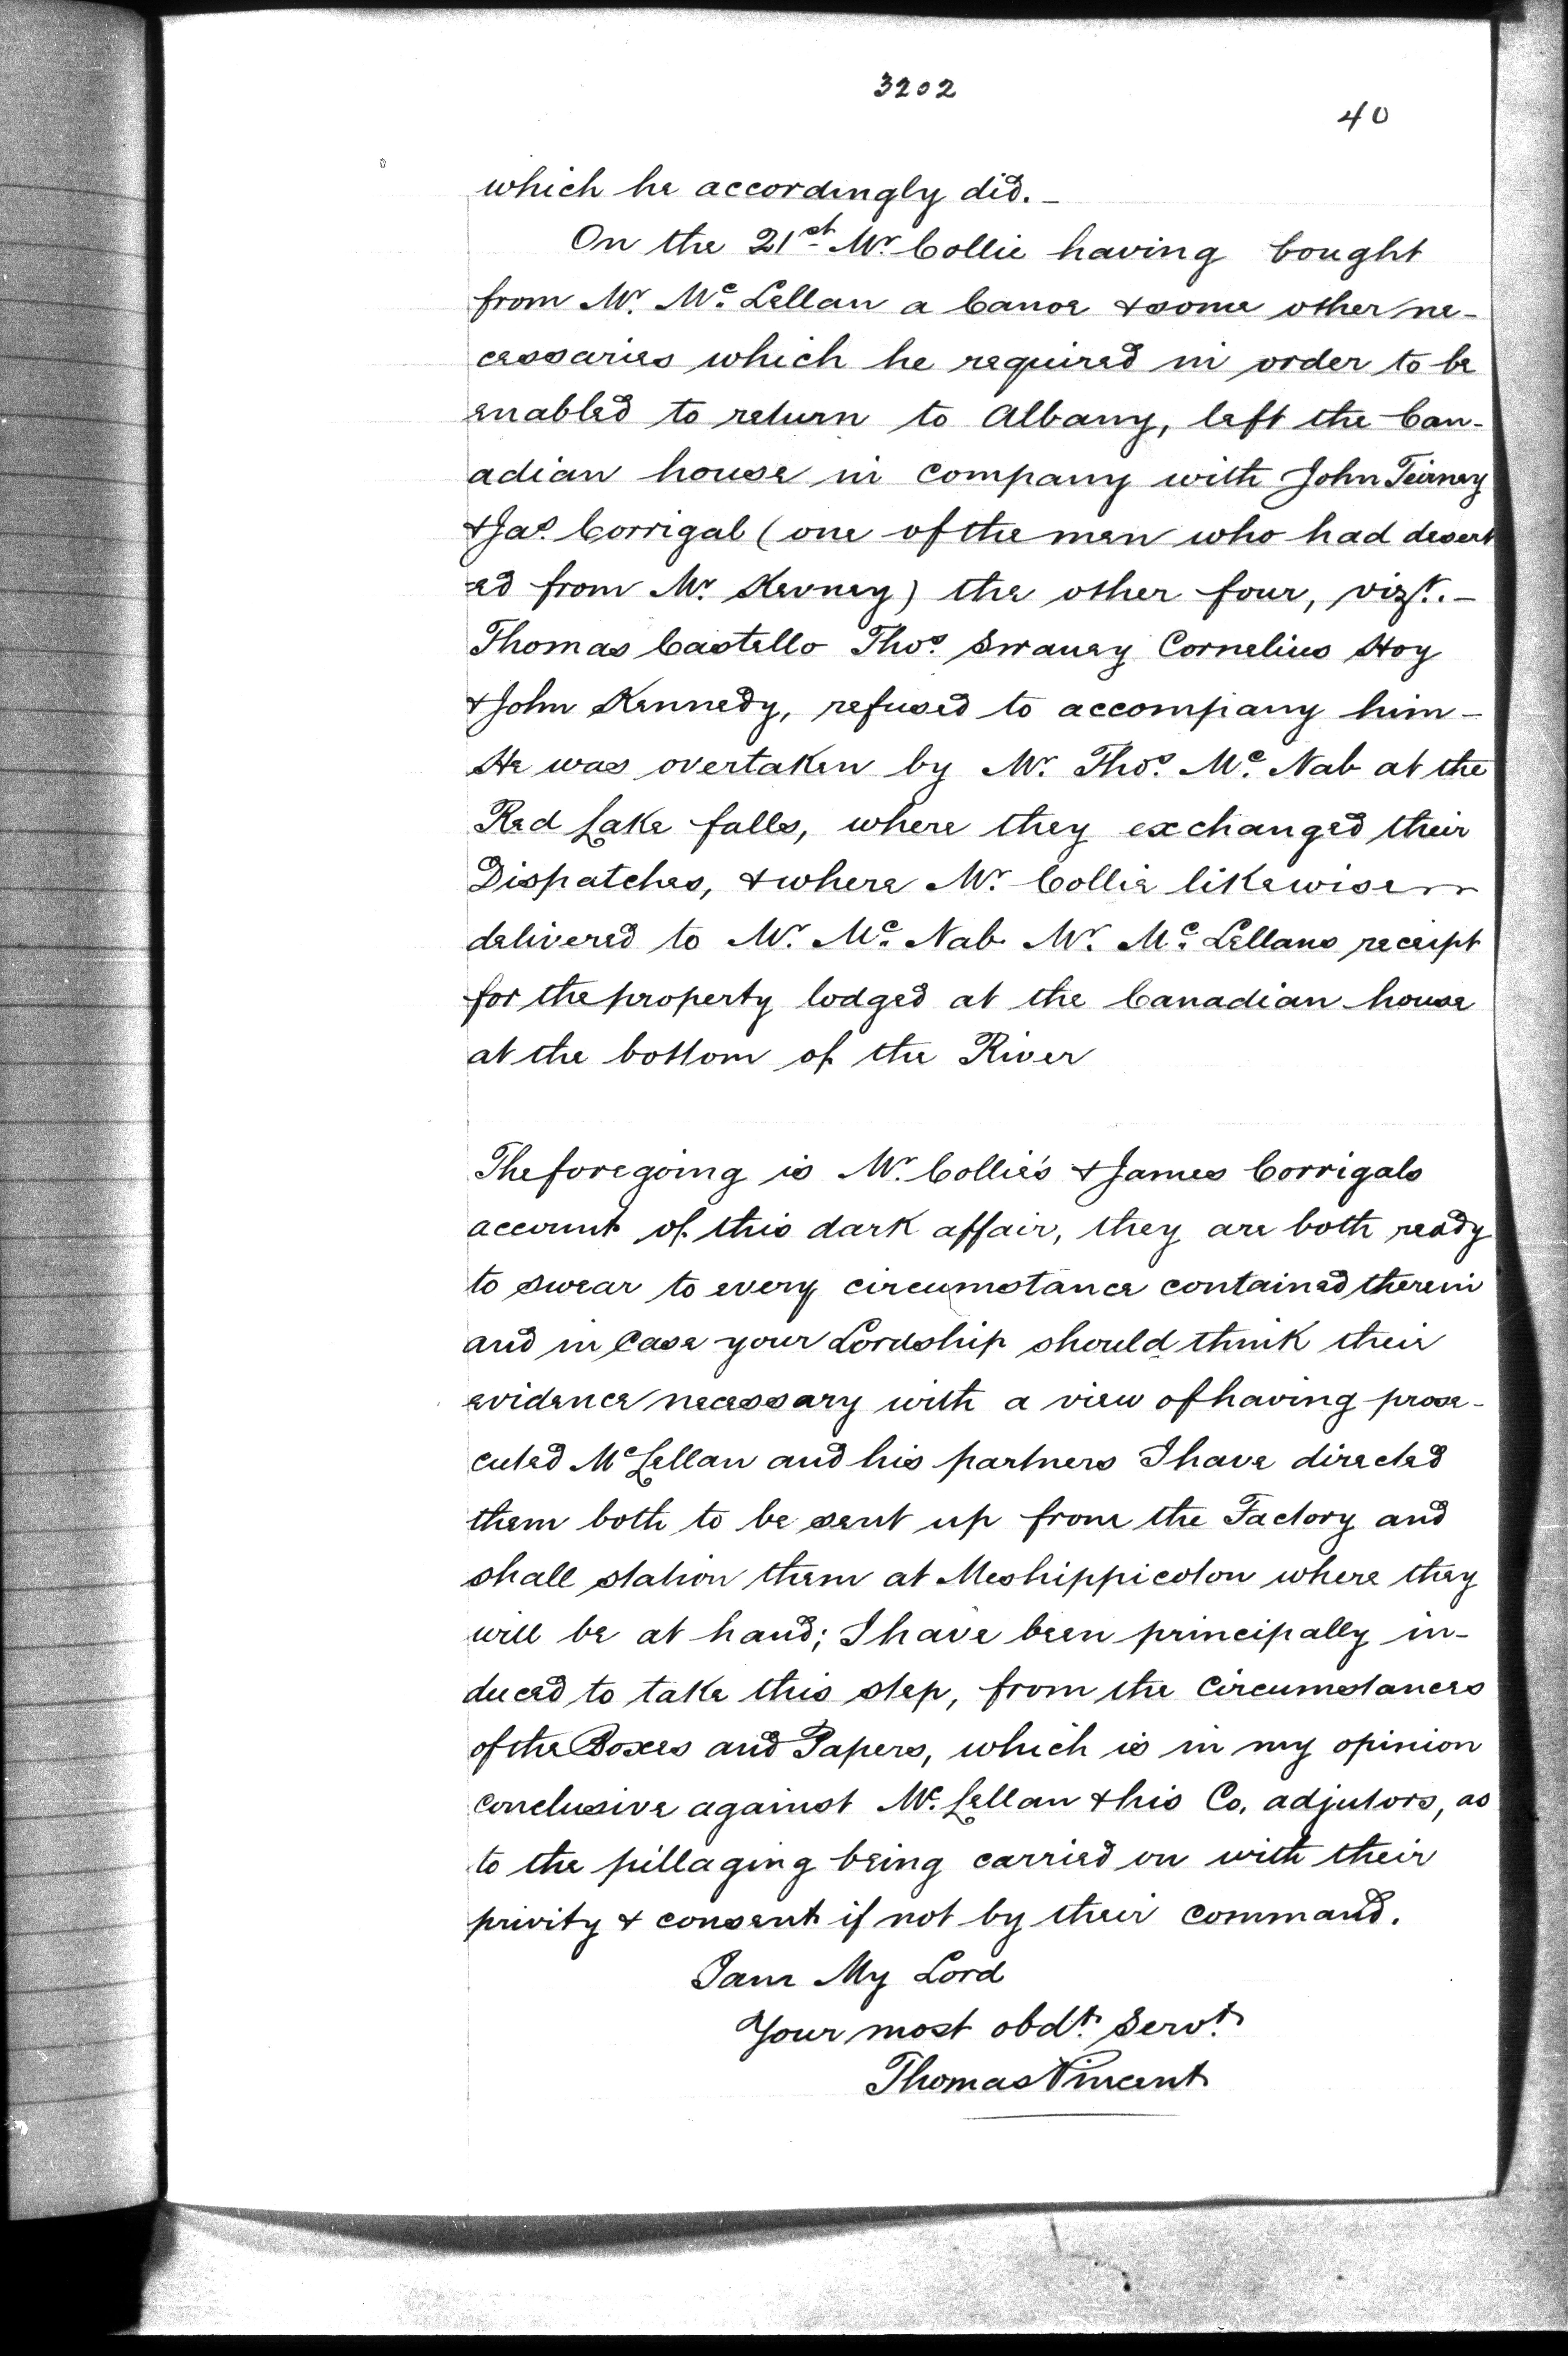 3202
40
which he accordingly did. –
On the 21st Mr. Collie having bought
from Mr. Mc. Lellan a Canoe & some other ne-
cessaries which he required in order to be
enabled to return to Albany, left the Can-
adian house in company with John Teirney
& Jas. Corrigal (one of the men who had desert
ed from Mr. Kevney) the other four, vizt. –
Thomas Castello Thos. Swaney Cornelius Hoy
& John Kennedy, refused to accompany him –
He was overtaken by Mr. Thos. Mc. Nab at the
Red Lake falls, where they exchanged their
Dispatches, & where Mr. Collie likewise
delivered to Mr. Mc. Nab Mr. Mc. Lellans receipt
for the property lodged at the Canadian house
at the bottom of the River
The foregoing is Mr. Collie's & James Corrigals
account of this dark affair, they are both ready
to swear to every circumstance contained therein
and in Case your Lordship should think their
evidence necessary with a view of having prose-
cuted McLellan and his partners I have directed
them both to be sent up from the Factory and
shall station them at Meshippicoton where they
will be at hand; I have been principally in-
duced to take this step, from the Circumstances
of the Boxes and Papers, which is in my opinion
conclusive against Mc. Lellan & his Co, adjutors, as
to the pillaging being carried on with their
privity & consent if not by their command.
I am My Lord
Your most obdt. Servt.
Thomas Vincent